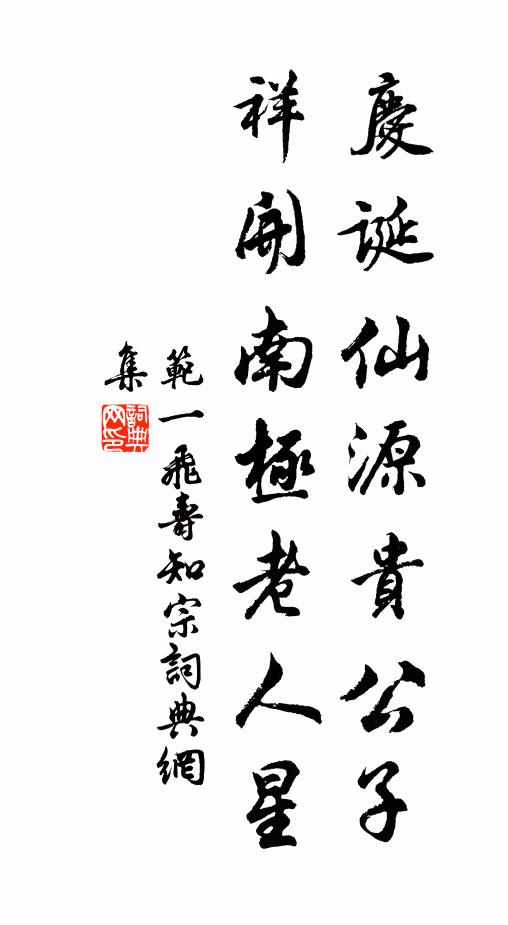 慶誕仙源貴公子
祥開南極老人星
範一飛壽知宗詞典網
集
詞典
网印